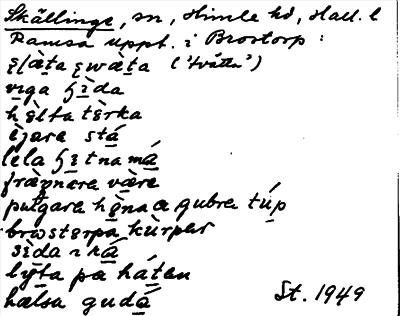 Skällinge, sn, Himle hd, Hall. l
Ramsa uppt. i Brostorp:
ʂl̯æ̀ta ʂwæ̀ta ('tvätta')
vı̣ga ɧı̣̀da
hèlta tèrka
èjara stá̱
lela ɧı̣tna má̱
fræŋnara være
putgara hø̀na a gubra túp
brostørpa kùrpar
sìda ı ká̱
lỳ̱ta pa há̱ten
hælsa gudá̱
St. 1949